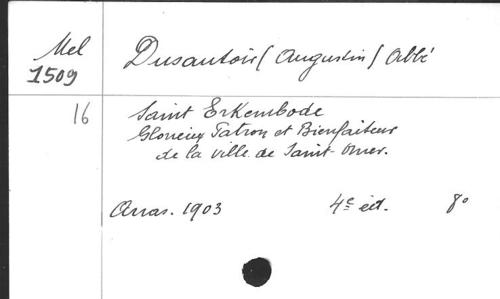 Mel
1509
Dusautoir (Augustin) Abbé
16
Saint Erkembode
Glorieux Patron et Bienfaiteur
de la ville de Saint-Omer.
Arras. 1903 4e éd. 8°